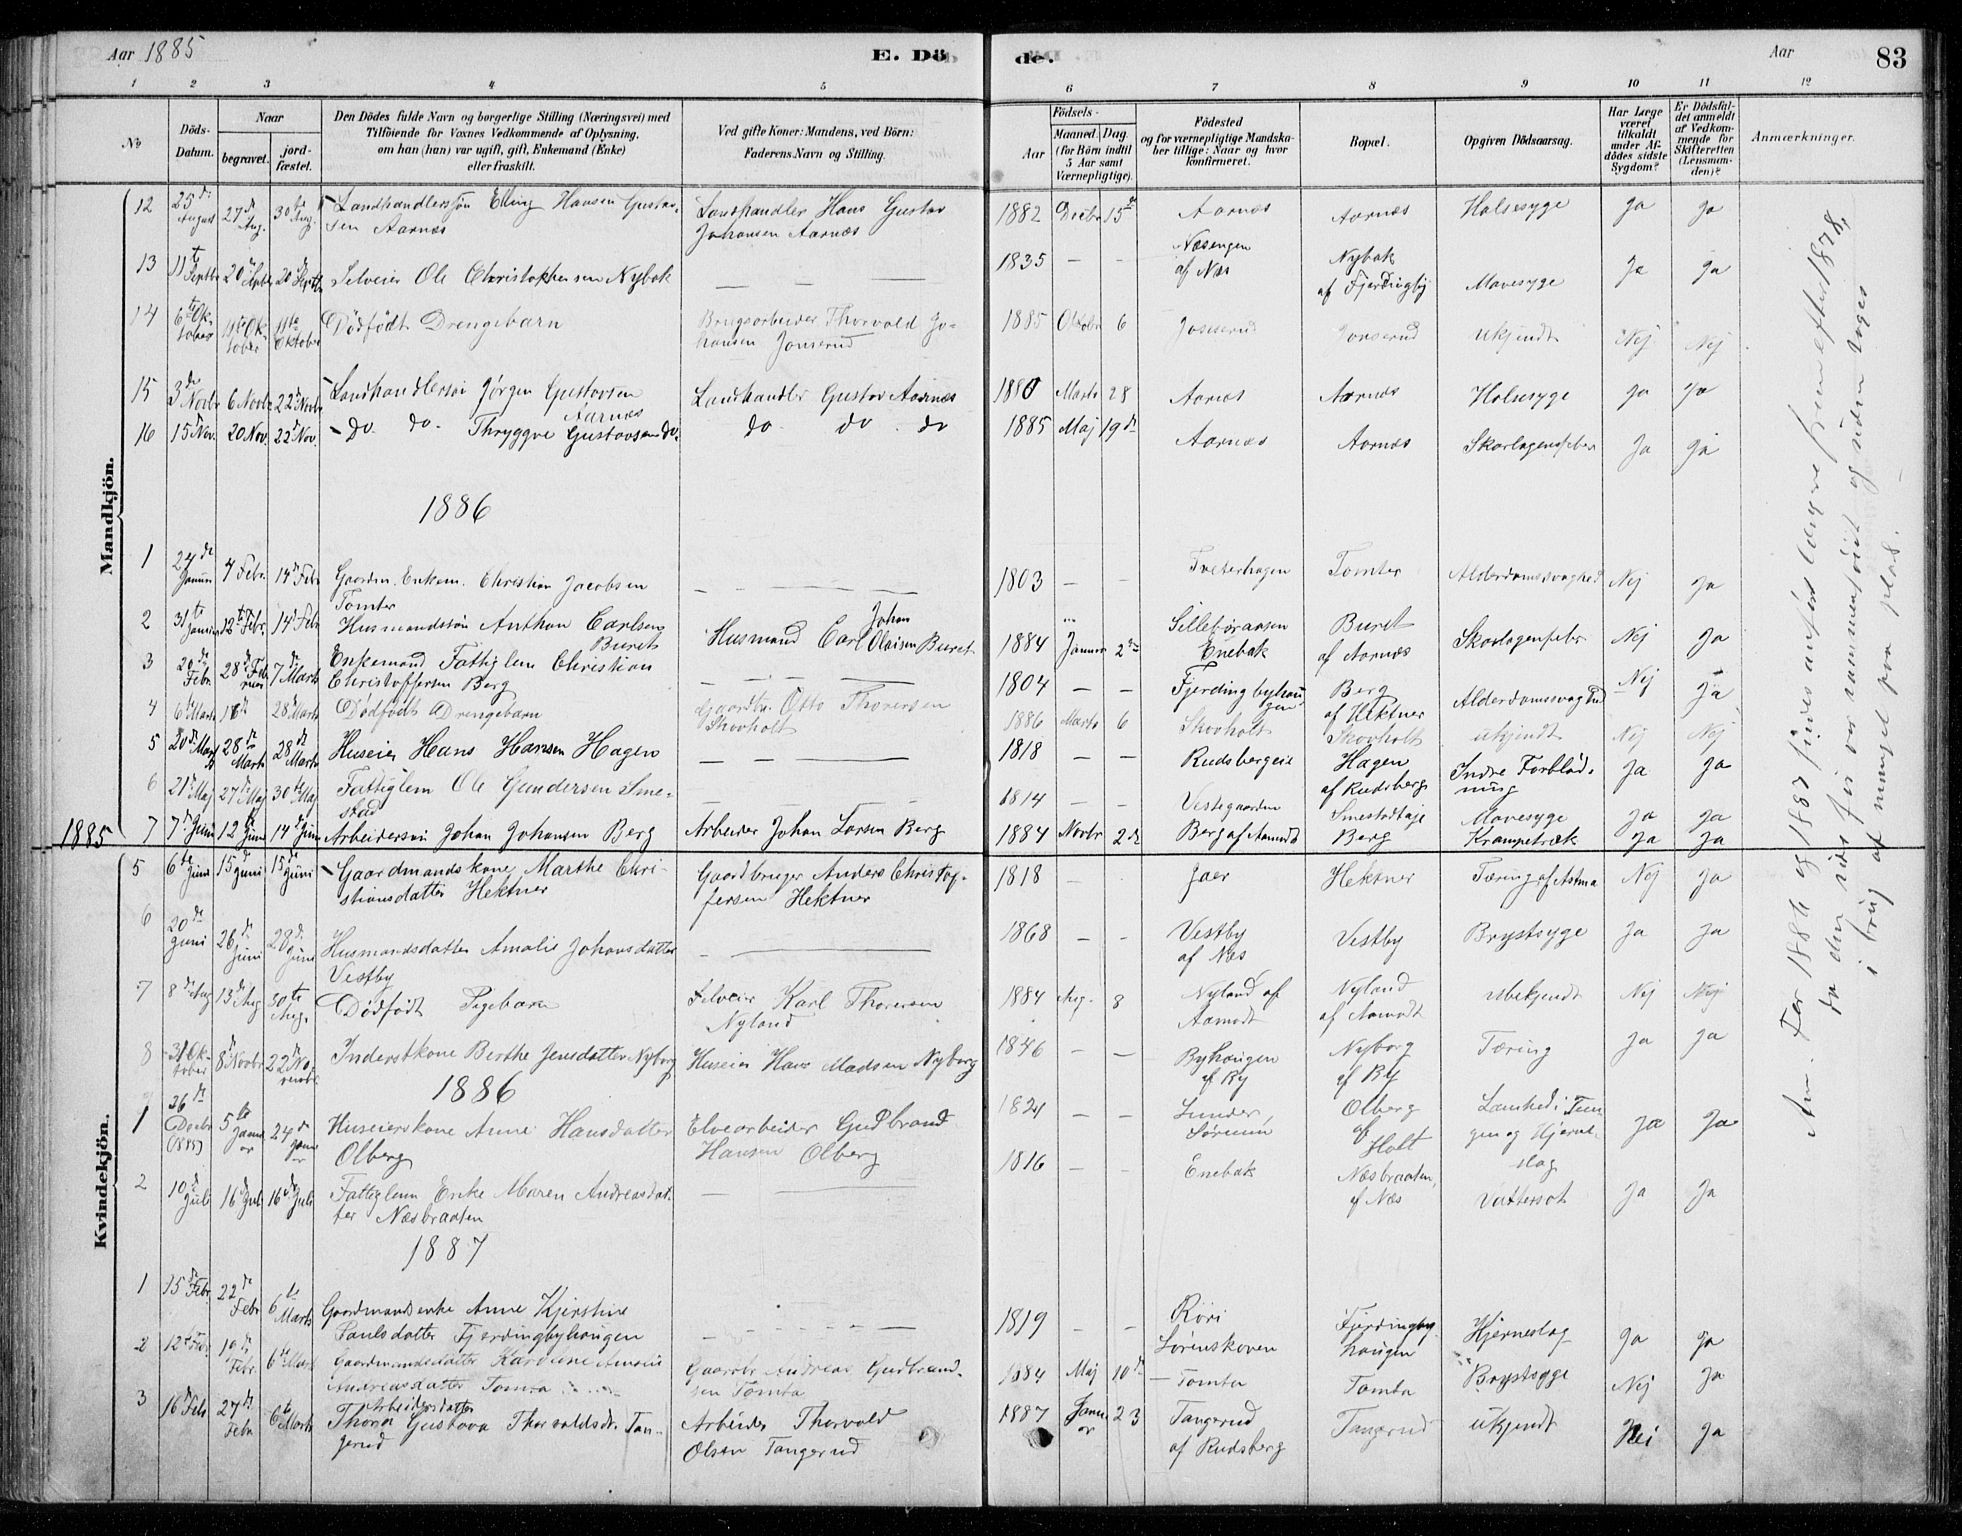 Aar 1885
E. Dö
de.
Aar
83
1 2 3 4 5 6 7 8 9 10 11 12
No
Döds-Datum.
Naar
begravet.
jord-fæstet.
Den Dödes fulde Navn og borgerlige Stilling (Næringsvei) med
Tilföiende for Voxnes Vedkommende af Oplysning,
om han (hun) var ugift, gift, Enkemand (Enke)
eller fraskilt.
Ved gifte Koner: Mandens, ved Börn:
Faderens Navn og Stilling.
Födsels-
Aar
Maaned. Dag.
(for Börn indtil
5 Aar samt
Værnepligtige).
Födested
og for værnepligtige Mandska-
ber tillige: Naar og hvor
konfirmeret.
Bopæl.
Opgiven Dödsaarsag.
Har Læge
været
tilkaldt
under Af-
dödes sidste
Sygdom?
Er Dödsfal-
det anmeldt
af Vedkom-
mende for
Skifteretten
(Lensman-
den)?
Anmærkninger.
Mandkjön.
12 25de August 27de Aug. 30te Aug. Landhandlersön Elling Hansen Gustav- Landhandler Hans Gustav 1882 Decbr 15de Aarnæs Aarnæs Halsesyge Ja Ja
sen Aarnæs Johansen Aarnæs
13 11te Septbr 20de Septbr 20de Septbr Selveier Ole Christophersen Nybak — — — 1835 — — Næsengen af Næs Nybak af Fjerdingby Mavesyge Ja Ja
14 6te Oktober 11te Oktober 11te Oktober Dödfödt Drengebarn Brugsarbeider Thorvald Jo- 1885 Oktobr 6 Jonserud Jonserud Ukjendt Nej Nej
hansen Jonserud
15 3de Novbr 6 Novbr 22de Novbr Landhandlersön Jörgen Gustavsen Aarnæs Landhandler Gustav Aarnæs 1880 Marts 28 Aarnæs Aarnæs Halsesyge Ja Ja
16 15de Nov. 20 Nov. 22de Nov. do. do. Thryggve Gustavsen do. do do. do 1885 Maj 19de Aarnæs Aarnæs Skarlagensfeber Ja Ja
1886
1 24de Januar 4 Febr. 14de Febr Gaardm. Enkem. Christian Jacobsen — — — 1803 — — Træterhagen Tomter Alderdomssvaghed Nej Ja
Tomter
2 31te Januar 12te Febr. 14de Febr Husmandssön Anthon Carlsen Buret Husmand Carl Johan Olaisen Buret 1884 Januar 2den Sillebøraasen Enebak Buret af Aarnæs Skarlagensfeber Nej Ja
3 20de Febr. 28de Februar 7de Marts Enkemand Fattiglem Christian — — — 1804 — — Fjerdingbyhaugen Berg af Hektner Alderdomssvaghed Nej Ja
Christoffersen Berg
4 6te Marts 18de 28de Marts Dödfödt Drengebarn Gaardbr. Otto Thorersen Skovholt 1886 Marts 6 Skovholt Skovholt ukjendt Nej Nej
5 20de Marts 28de Marts 28de Marts Huseier Hans Hansen Hagen — — — 1818 — — Rudsbergeie Hagen af Rudsberg Indre Forblöd-ning Ja Ja
6 21de Maj 27de Maj 30te Maj Fattiglem Ole Gundersen Sme- — — 1814 — — Vestegaarden Smestadeje Mavesyge Ja Ja
stad
7 7de Juni 12te Juni 14de Juni Arbeidersön Johan Johansen Berg Arbeider Johan Larsen Berg 1884 Novbr 2de Berg af Aamodt Berg Krampetræk Ja Ja
1885
Kvindekjön.
5 6te Juni 15de Juni 15de Juni Gaardmandskone Marthe Chri- Gaardbruger Anders Christof- 1818 — Jaer Hektner Tæring af Astma Nej Ja
stiansdatter Hektner fersen Hektner
6 20de Juni 26de Juni 28de Juni Husmandsdatter Amalie Johansdatter — — 1868 — — Vestby af Næs Vestby Brystsyge Ja Ja
Vestby
7 8de Aug 13de Aug 30te Aug. Dödfödt Pigebarn Selveier Karl Thorersen Nyland 1884 Aug. 8 Nyland af Aamodt Nyland af Aamodt Ubekjendt Nej Nej
8 31 Oktober 8de Novbr 22de November Inderstkone Berthe Jensdatter Nyborg Huseier Hans Madsen Nyborg 1846 — — Byhaugen af By Nyborg af By Tæring Ja Ja
1886
1 26de Decbr (1885) 5te Januar 24de Januar Huseierskone Anne Hansdatter Elvearbeider Gudbrand 1824 — — Lunder, Sørum Olberg af Holt Lamhed i Tun-gen og Hjerne-slag Ja Ja
Olberg Hansen Olberg
2 10de Juli 16de Juli 16de Juli Fattiglem Enke Maren Andreasdat- — — 1816 — — Enebak Næsbraaten, af Næs Vattersot Ja Ja
ter Næsbraaten
1887
1 15de Febr. 22de Febr 6te Marts Gaardmandsenke Anne Kjerstine — — — 1819 — — Röri Lørenskoven Fjerdingby-haugen Hjerneslag Ja Ja
Paulsdatter Fjerdingbyhaugen
2 12te Febr. 19de Febr. 6te Marts Gaardmandsdatter Karoline Amalie Gaardbr Andreas Gudbrand- 1884 Maj 10de Tomta Tomta Brystsyge Nej Ja
Andreasdatter Tomta sen Tomta
3 16 Febr 27de Febr 6te Marts Arbeidersdatter Thora Gustava Thorvaldsdr. Tan- Arbeider Thorvald 1887 Januar 23 Tangerud af Rudsberg Tangerud Ukjendt Nei Ja
gerud Olsen Tangerud
Anm. For 1886 og 1887 findes anført lægne fremefter 1878,
da den side før var sammenføiet og uden usges
i brug af mangel paa plads. —